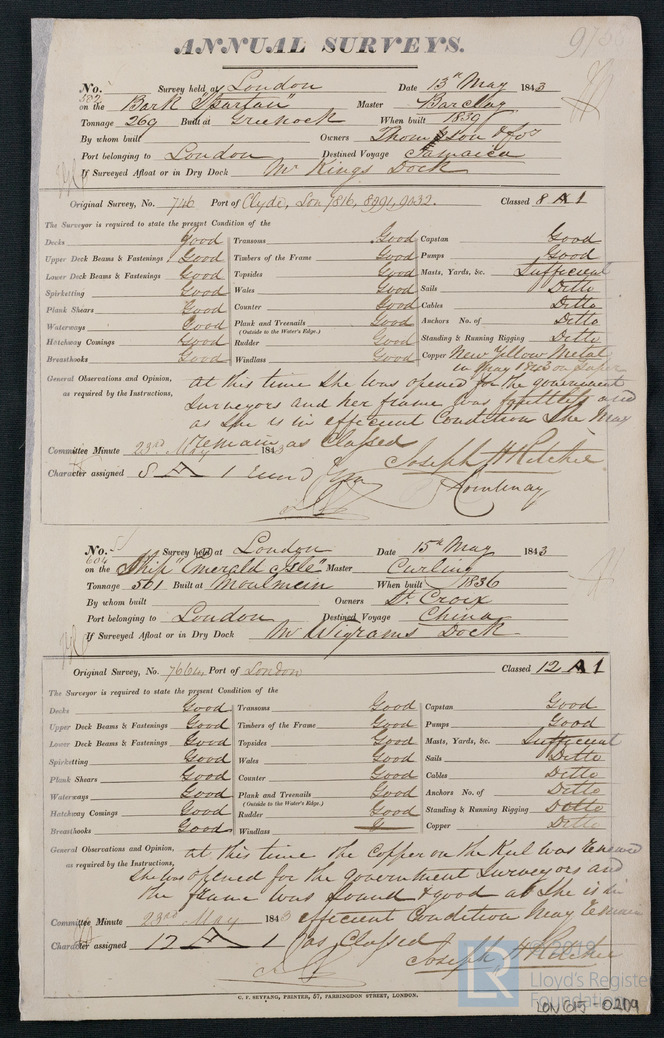 ANNUAL SURVEYS.
No. 582 Survey held at London Date 13th May 1843
on the Bark "Spartan" Master Barclay
Tonnage 269 Built at Greenock When built 1839
By whom built Owners Thompson & Co
Port belonging to London Destined Voyage Jamaica
If Surveyed Afloat or in Dry Dock Mr Kings Dock
Original Survey, No. 746 Port of Clyde, Lon 7816, 8291, 9032. Classed 8 A 1
The Surveyor is required to state the present Condition of the
Decks Good Transoms Good Capstan Good
Upper Deck Beams & Fastenings Good Timbers of the Frame Good Pumps Good
Lower Deck Beams & Fastenings Good Topsides Good Masts, Yards, &c. Sufficient
Spirketting Good Wales Good Sails Ditto
Plank Shears Good Counter Good Cables Ditto
Waterways Good Plank and Treenails Good Anchors No. of Ditto
(Outside to the Water's Edge.)
Hatchway Comings Good Rudder Good Standing & Running Rigging Ditto
Breasthooks Good Windlass Good Copper New Yellow Metal
in May 1843 on
General Observations and Opinion, at this time She was opened for the government
as required by the Instructions, Surveyors and her frame was faultless and
as She is in efficient Condition She May
remain as Classed
Committee Minute 23rd May 1843
Joseph H Ritchie
Character assigned 8 A 1
Courtenay
No. 604 Survey held at London Date 15th May 1843
on the Ship "Emerald Isle" Master Curling
Tonnage 501 Built at Moulmein When built 1836
By whom built Owners St. Croix
Port belonging to London Destined Voyage China
If Surveyed Afloat or in Dry Dock Mr Wigrams Dock
Original Survey, No. 7664 Port of London Classed 12 A 1
The Surveyor is required to state the present Condition of the
Decks Good Transoms Good Capstan Good
Upper Deck Beams & Fastenings Good Timbers of the Frame Good Pumps Good
Lower Deck Beams & Fastenings Good Topsides Good Masts, Yards, &c. Sufficient
Spirketting Good Wales Good Sails Ditto
Plank Shears Good Counter Good Cables Ditto
Waterways Good Plank and Treenails Good Anchors No. of Ditto
(Outside to the Water's Edge.)
Hatchway Comings Good Rudder Good Standing & Running Rigging Ditto
Breasthooks Good Windlass Copper Ditto
General Observations and Opinion, at this time the Copper on the Keel was Renewed
as required by the Instructions, She was opened for the Government Surveyors and
the frame was sound & good as She is in
Committee Minute 23rd May 1843 efficient Condition May Remain
Character assigned 12 A 1 as Classed
Joseph H Ritchie
C. F. SEYFANG, PRINTER, 57, FARRINGDON STREET, LONDON.
LR
Lloyd's Register
Foundation
LON 615-0219